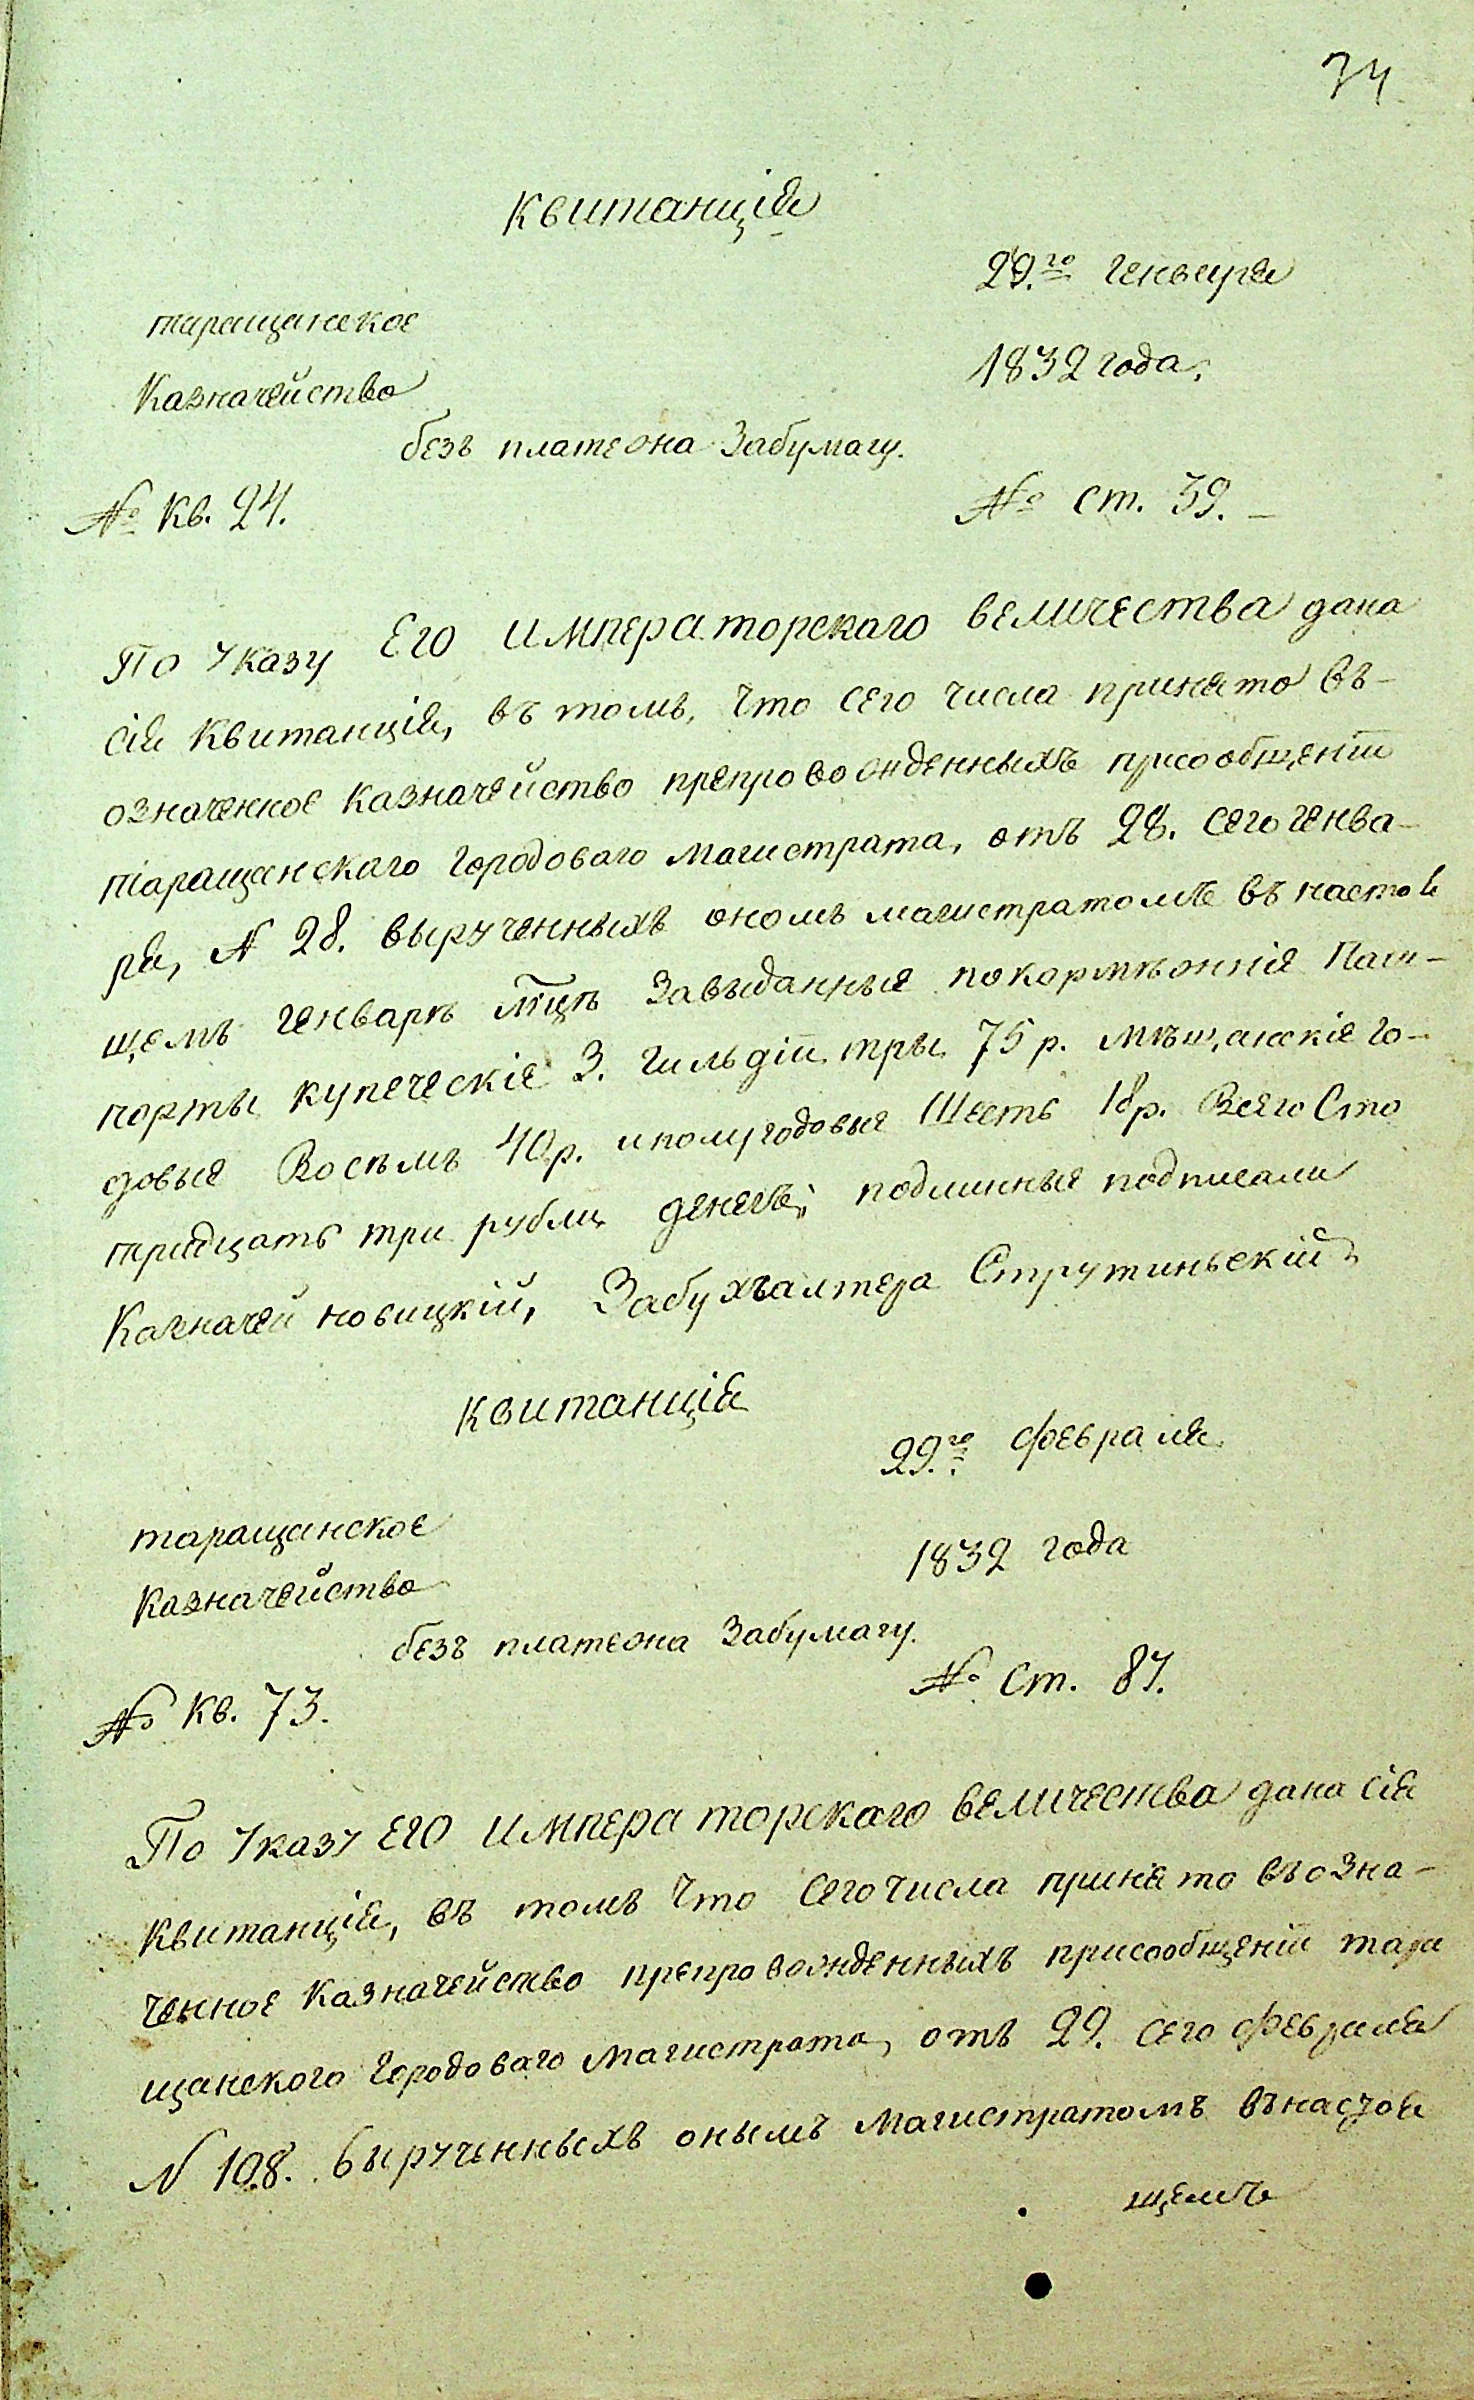 34
Квитанцiя
29.го Генваря
таращанское
1832 года.
Казначейство
безъ платежа Забумагу.
№ Кв. 24.
№ ст. 39.
По Указу ЕГО ИМПЕРАТОРСКАГО ВЕЛИЧЕСТВА дана
сiя Квитанцiя, въ томъ, Что сего числа принято въ-
означенное Казначейство препровожденныхъ присообщенiи
таращанскаго Городоваго Магистрата, отъ 28. сего Генва-
ря, N 28. вырученныхъ ономъ магистратомъ въ настоя
щемъ Генварѣ мцѣ Завыданные покормѣжнiе Паш-
порты купеческiе 3. Гильдiи три 75 р. мѣщанскiе го-
довые Восѣмъ 40 р. иполугодовые Шесть 18 р. Всего Сто
тридцать три рубли денегъ; подлинные подписали
Казначей новицкiй, Забухъалтера Струтиньскiй
Квитанцiя
29.го февраля
таращанское
1832 года
Казначейство
безъ платежа Забумагу.
№ Ст. 87.
№ Кв. 73.
По Указу ЕГО ИМПЕРАТОРСКАГО ВЕЛИЧЕСТВА дана сiя
Квитанцiя, въ томъ Что сего Числа принято въозна-
ченное Казначейство препровожденныхъ присообщенiи тара
щанского Городоваго Магистрата, отъ 29. сего Февраля
N 108. Вырученныхъ онымъ Магистратомъ Внастоя
щемъ